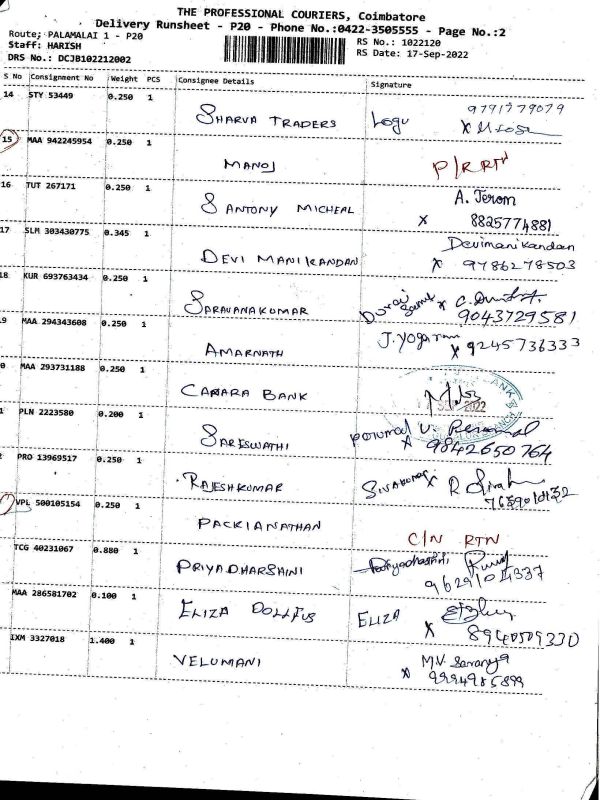 THE PROFESSIONAL COURIERS, Coimbatore
Delivery Runsheet - P20 - Phone No.:0422-3505555 - Page No.:2
Route; PALAMALAI 1 - P20
Staff: HARISH
RS No.: 1022120
DRS No.: DCJB102212002
RS Date: 17-Sep-2022
S No Consignment No Weight PCS Consignee Details Signature
14 STY 53449 0.250 1 SHARVA TRADERS Logu 9791779079
15 MAA 942245954 0.250 1 MANOJ P/R RTN
16 TUT 267171 0.250 1 S ANTONY MICHEAL A. Jerom
x 8825774881
17 SLM 303430775 0.345 1 DEVI MANIKANDAN Devimanikandan
x 9786278503
18 KUR 693763434 0.250 1 SARAVANAKUMAR x
9043729581
9 MAA 294343608 0.250 1 AMARNATH J. Yogaram
x 9245736333
0 MAA 293731188 0.250 1 CANARA BANK 2022
1 PLN 2223580 0.200 1 SARESWATHI Perumal V. Perumal
x 9842650764
PRO 13969517 0.250 1 RAJESHKUMAR Sivakumar x
VPL 500105154 0.250 1 PACKIANATHAN C/N RTN
TCG 40231067 0.880 1 PRIYADHARSHINI
MAA 286581702 0.100 1 ELIZA DOLLFUS ELIZA
x 8940509330
IXM 3327018 1.400 1 VELUMANI M.V. Saranya
x 9994985899